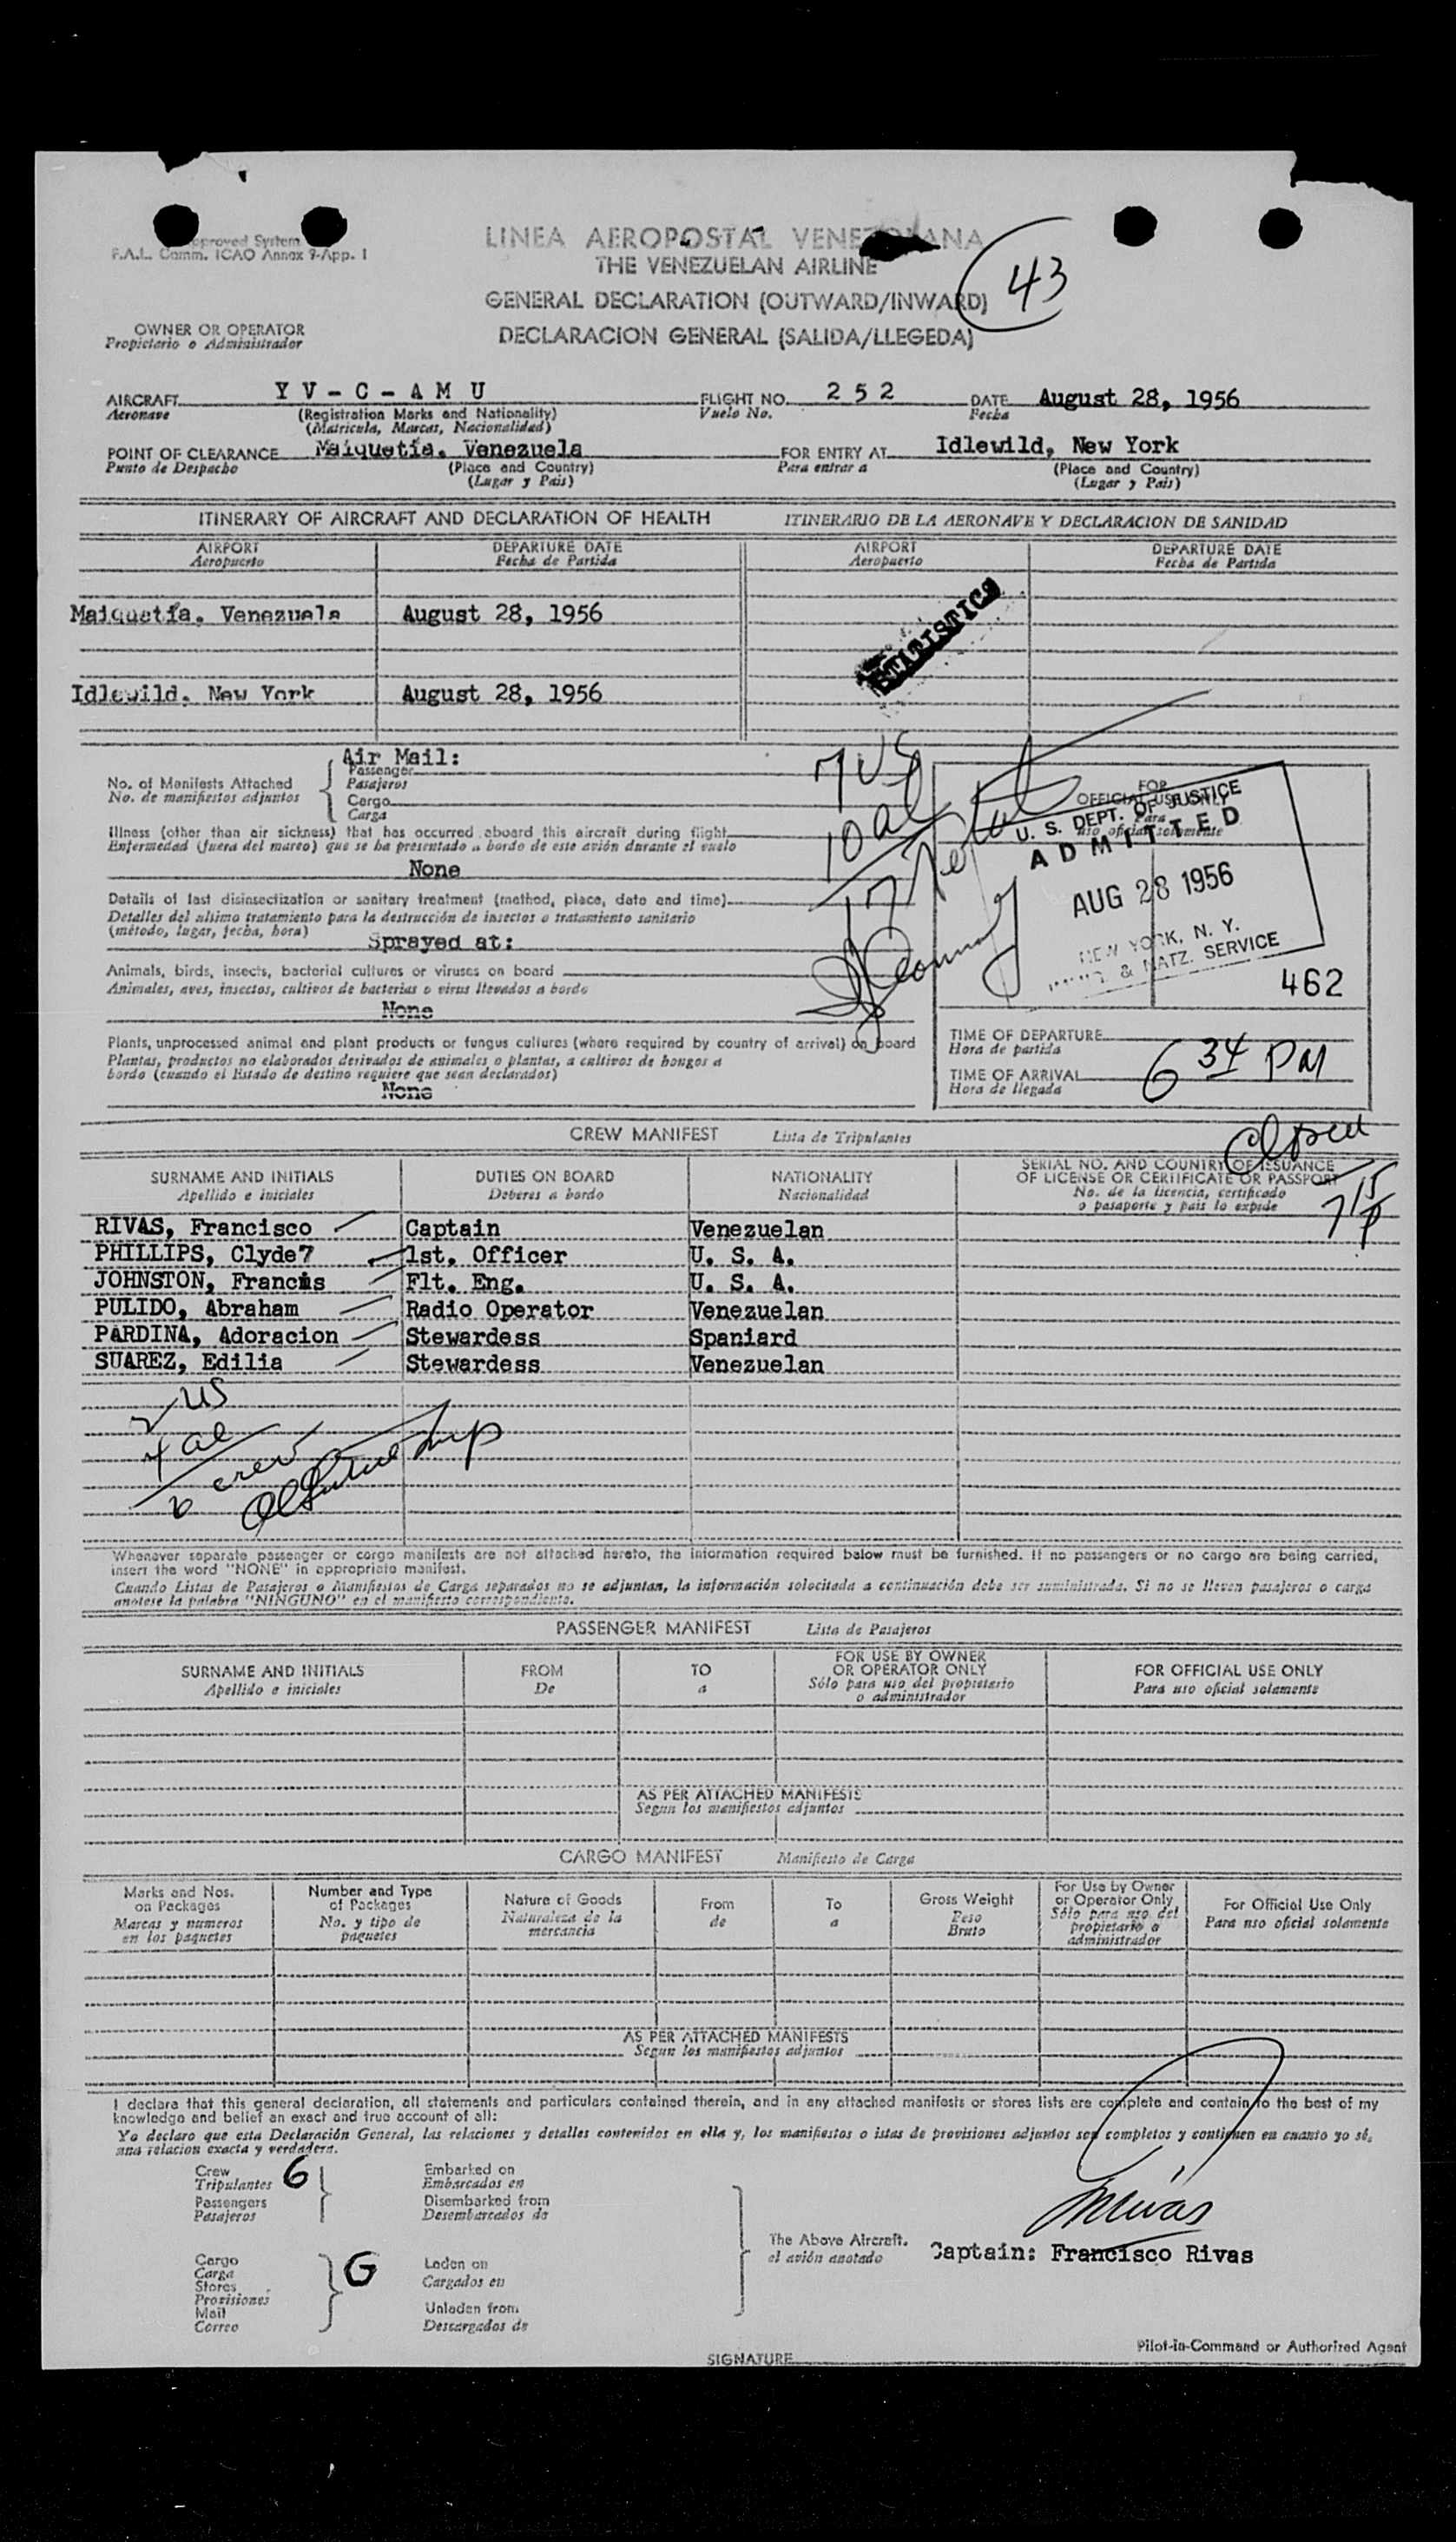 Approved System
F.A.L. Comm. ICAO Annex 9-App. 1
LINEA AEROPOSTAL VENEZOLANA
THE VENEZUELAN AIRLINE
GENERAL DECLARATION (OUTWARD/INWARD)
DECLARACION GENERAL (SALIDA/LLEGEDA)
43
OWNER OR OPERATOR
Propietario o Administrador
AIRCRAFT Y V - C - A M U FLIGHT NO. 2 5 2 DATE August 28, 1956
Aeronave (Registration Marks and Nationality) Vuelo No. Fecha
(Matricula, Marcas, Nacionalidad)
POINT OF CLEARANCE Maiquetia. Venezuela FOR ENTRY AT Idlewild, New York
Punto de Despacho (Place and Country) Para entrar a (Place and Country)
(Lugar y Pais) (Lugar y Pais)
ITINERARY OF AIRCRAFT AND DECLARATION OF HEALTH ITINERARIO DE LA AERONAVE Y DECLARACION DE SANIDAD
AIRPORT DEPARTURE DATE AIRPORT DEPARTURE DATE
Aeropuerto Fecha de Partida Aeropuerto Fecha de Partida
Maiquetía. Venezuela August 28, 1956
STATISTICS
Idlewild. New York August 28, 1956
Air Mail:
No. of Manifests Attached Passenger
No. de manifiestos adjuntos Pasajeros
Cargo
Carga
7 US
10 al
17
FOR
OFFICIAL USE ONLY
Para
uso oficial solamente
U. S. DEPT. OF JUSTICE
ADMITTED
AUG 28 1956
NEW YORK, N. Y.
& NATZ. SERVICE
462
Illness (other than air sickness) that has occurred aboard this aircraft during flight
Enfermedad (fuera del mareo) que se ha presentado a bordo de este avión durante el vuelo
None
Details of last disinsectization or sanitary treatment (method, place, date and time)
Detalles del ultimo tratamiento para la destrucción de insectos o tratamiento sanitario
(método, lugar, fecha, hora)
Sprayed at:
Animals, birds, insects, bacterial cultures or viruses on board
Animales, aves, insectos, cultivos de bacterias o virus llevados a bordo
None
Plants, unprocessed animal and plant products or fungus cultures (where required by country of arrival) on board
Plantas, productos no elaborados derivados de animales o plantas, a cultivos de hongos a
bordo (cuando el Estado de destino requiere que sean declarados)
None
TIME OF DEPARTURE
Hora de partida
TIME OF ARRIVAL 6 34 PM
Hora de llegada
CREW MANIFEST Lista de Tripulantes
SURNAME AND INITIALS DUTIES ON BOARD NATIONALITY SERIAL NO. AND COUNTRY OF ISSUANCE
Apellido e iniciales Deberes a bordo Nacionalidad OF LICENSE OR CERTIFICATE OR PASSPORT
No. de la licencia, certificado
o pasaporte y pais lo expide
RIVAS, Francisco Captain Venezuelan
PHILLIPS, Clyde7 1st. Officer U. S. A.
JOHNSTON, Francis Flt. Eng. U. S. A.
PULIDO, Abraham Radio Operator Venezuelan
PARDINA, Adoracion Stewardess Spaniard
SUAREZ, Edilia Stewardess Venezuelan
2 US
4 al
6 crew
Whenever separate passenger or cargo manifests are not attached hereto, the information required below must be furnished. If no passengers or no cargo are being carried,
insert the word "NONE" in appropriate manifest.
Cuando Listas de Pasajeros o Manifiestos de Carga separados no se adjuntan, la información solocitada a continuación debe ser suministrada. Si no se llevan pasajeros o carga
anótese la palabra "NINGUNO" en el manifiesto correspondiente.
PASSENGER MANIFEST Lista de Pasajeros
SURNAME AND INITIALS FROM TO FOR USE BY OWNER OR OPERATOR ONLY FOR OFFICIAL USE ONLY
Apellido e iniciales De a Sólo para uso del propietario o administrador Para uso oficial solamente
AS PER ATTACHED MANIFESTS
Segun los manifiestos adjuntos
CARGO MANIFEST Manifiesto de Carga
Marks and Nos. on Packages Number and Type of Packages Nature of Goods From To Gross Weight For Use by Owner or Operator Only For Official Use Only
Marcas y numeros en los paquetes No. y tipo de paquetes Naturaleza de la mercancia de a Peso Bruto Sólo para uso del propietario o administrador Para uso oficial solamente
AS PER ATTACHED MANIFESTS
Segun los manifiestos adjuntos
I declare that this general declaration, all statements and particulars contained therein, and in any attached manifests or stores lists are complete and contain to the best of my
knowledge and belief an exact and true account of all:
Yo declaro que esta Declaración General, las relaciones y detalles contenidos en ella y, los manifiestos o istas de provisiones adjuntos son completos y contienen en cuanto yo sé,
una relacion exacta y verdadera.
Crew 6 Embarked on
Tripulantes Embarcados en
Passengers Disembarked from
Pasajeros Desembarcados de
The Above Aircraft.
el avión anotado
Captain: Francisco Rivas
Cargo G Laden on
Carga Cargados en
Stores
Provisiones
Mail Unladen from
Correo Descargados de
Pilot-in-Command or Authorized Agent
SIGNATURE